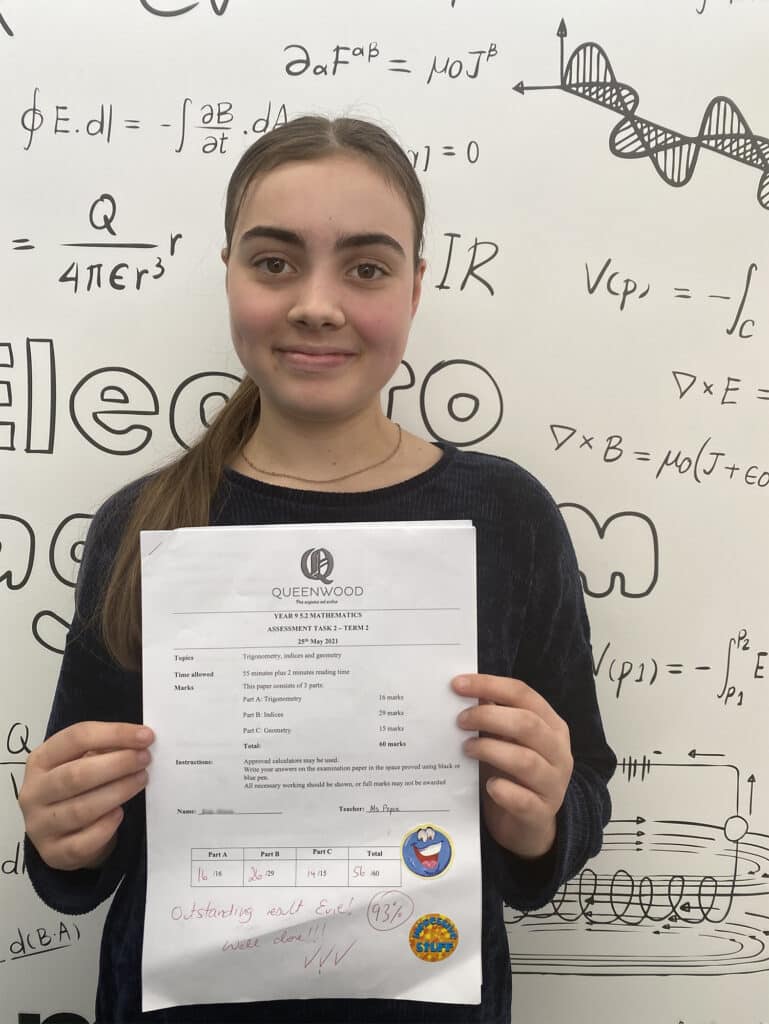 ∂αF^αβ = μ0J^β
∮E.dl = -∫ ∂B/∂t .dA
] = 0
= Q/4πϵr³ r
IR
V(p) = -∫C
Electro
∇×E =
∇×B = μ0(J+ϵ0
m
V(p1) = -∫p1 P2 E
Q
d(B.A)
QUEENWOOD
YEAR 9 5.2 MATHEMATICS
ASSESSMENT TASK 2 – TERM 2
25th May 2021
Topics Trigonometry, indices and geometry
Time allowed 55 minutes plus 2 minutes reading time
Marks This paper consists of 3 parts:
Part A: Trigonometry 16 marks
Part B: Indices 29 marks
Part C: Geometry 15 marks
Total: 60 marks
Instructions: Approved calculators may be used.
Write your answers on the examination paper in the space proved using black or
blue pen.
All necessary working should be shown, or full marks may not be awarded
Name: Teacher: Ms
Part A Part B Part C Total
16 /16 26 /29 14 /15 56 /60
Outstanding result Evie! 93%
Well done!!!
IMPRESSIVE
STUFF